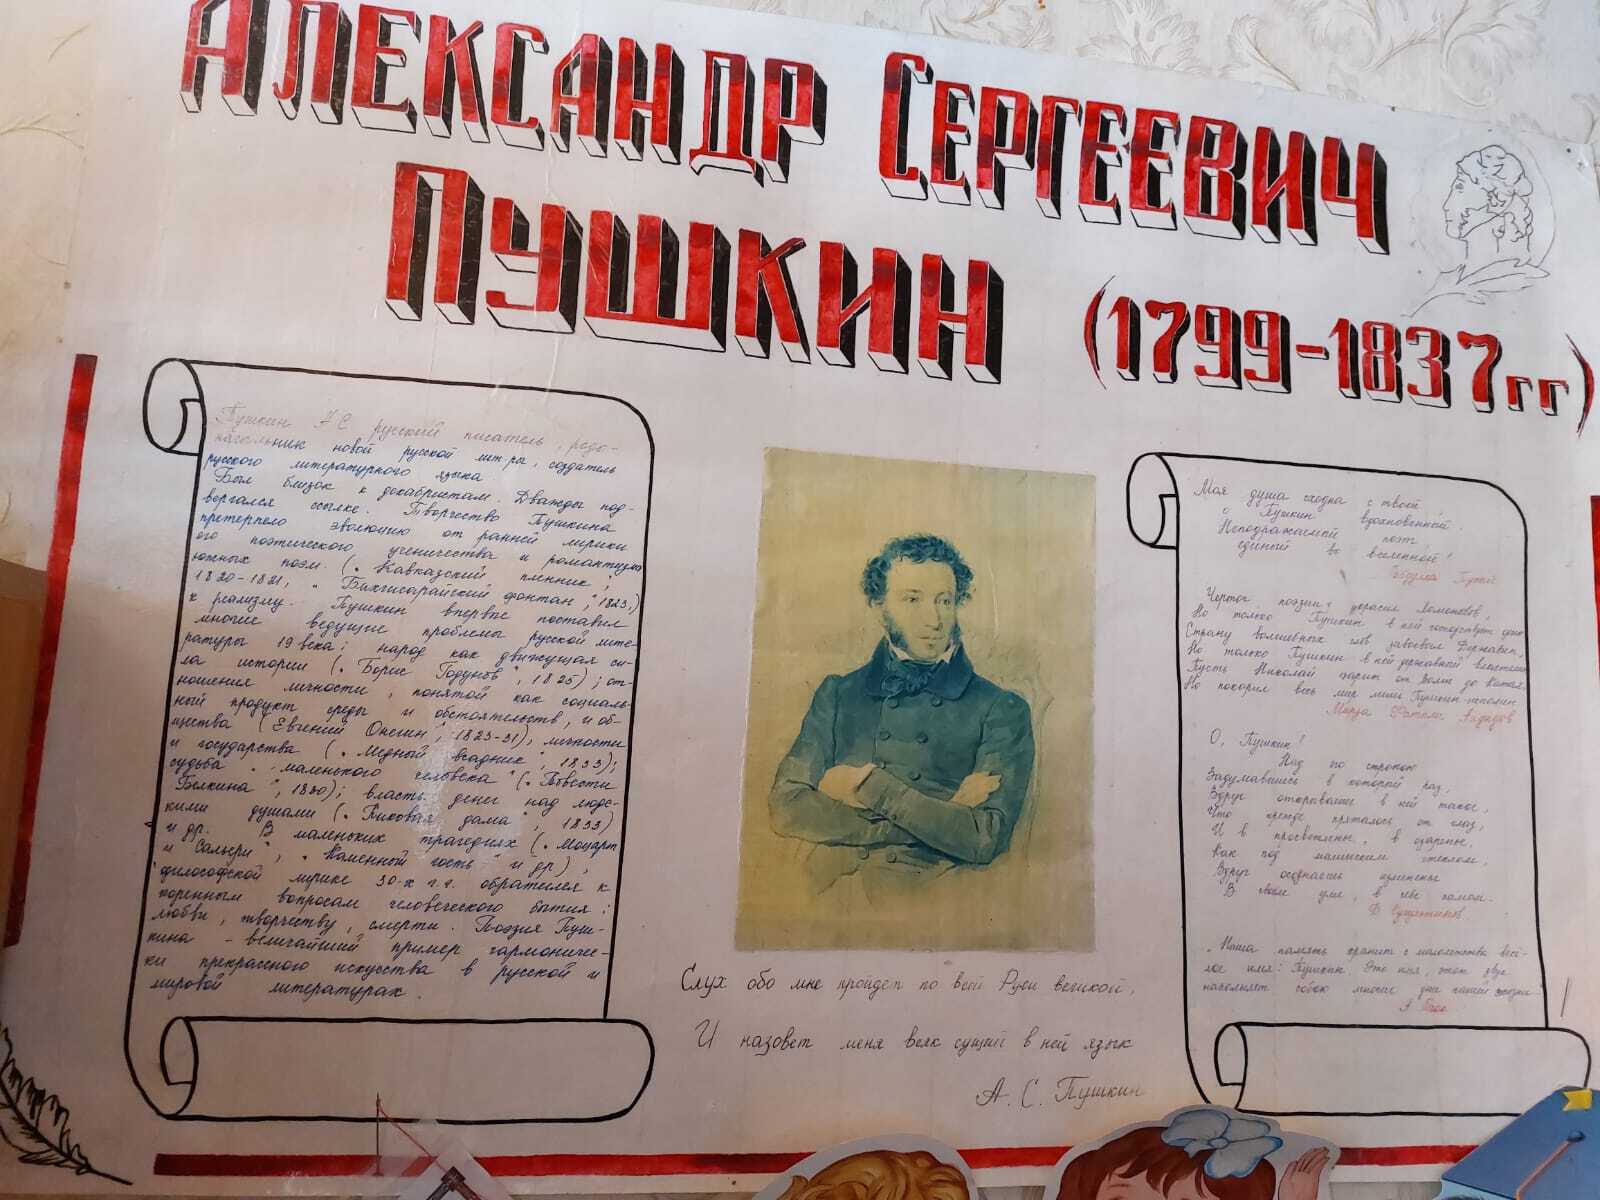 Александр Сергеевич
Пушкин (1799-1837гг)
Пушкин А С русский писатель, родо-
начальник новой русской лит-ры, создатель
русского литературного языка
Был близок к декабристам. Дважды под-
вергался ссылке. Творчество Пушкина
претерпело эволюцию от ранней лирики
ого поэтического ученичества и романтизма
южных поэм. („Кавказский пленник",
1820-1821, „Бахчисарайский фонтан", 1823,)
к реализму. Пушкин впервые поставил
многие ведущие проблемы русской лите-
ратуры 19 века: народ как движущая си-
ла истории („Борис Годунов", 1825); от-
ношения личности, понятой как социаль-
ный продукт среды и обстоятельств, и об-
щества („Евгений Онегин", 1823-31), личности
и государства („Медный всадник", 1833);
судьба „маленького человека" („Повести
Белкина", 1830); власть денег над людс-
кими душами („Пиковая дама", 1833)
и др. В маленьких трагедиях („Моцарт
и Сальери", „Каменный гость" и др),
философской лирике 30-х г.г. обратился к
коренным вопросам человеческого бытия:
любви, творчеству, смерти. Поэзия Пуш-
кина - величайший пример гармоничес-
ки прекрасного искусства в русской и
мировой литературах.
Слух обо мне пройдет по всей Руси великой,
И назовет меня всяк сущий в ней язык
А. С. Пушкин
Моя душа сходна с твоей,
о Пушкин вдохновенный.
Неподражаемый поэт,
единый во вселенной!
Габдулла Тукай
Чертог поэзии украсил Ломоносов,
Но только Пушкин в ней господствует
Страну волшебных слов завоевал Державин,
Но только Пушкин в ней державный властелин
Пусть Николай царит от Волги до Китая,
Но покорил весь мир Пушкин-исполин
Мирза Фатали Ахундов
О, Пушкин!
Над по строкою
Задумавшись в который раз,
Вдруг открываешь в ней такое,
Что прежде пряталось от глаз,
И в просветленье, в озаренье,
Как под магическим стеклом,
Вдруг осознаешь измененье
В твоем уме, в тебе самом.
„Наша память хранит с малолетства весе-
лое имя: Пушкин. Это имя, этот звук
наполняет собою многие дни нашей жизни"
А Блок